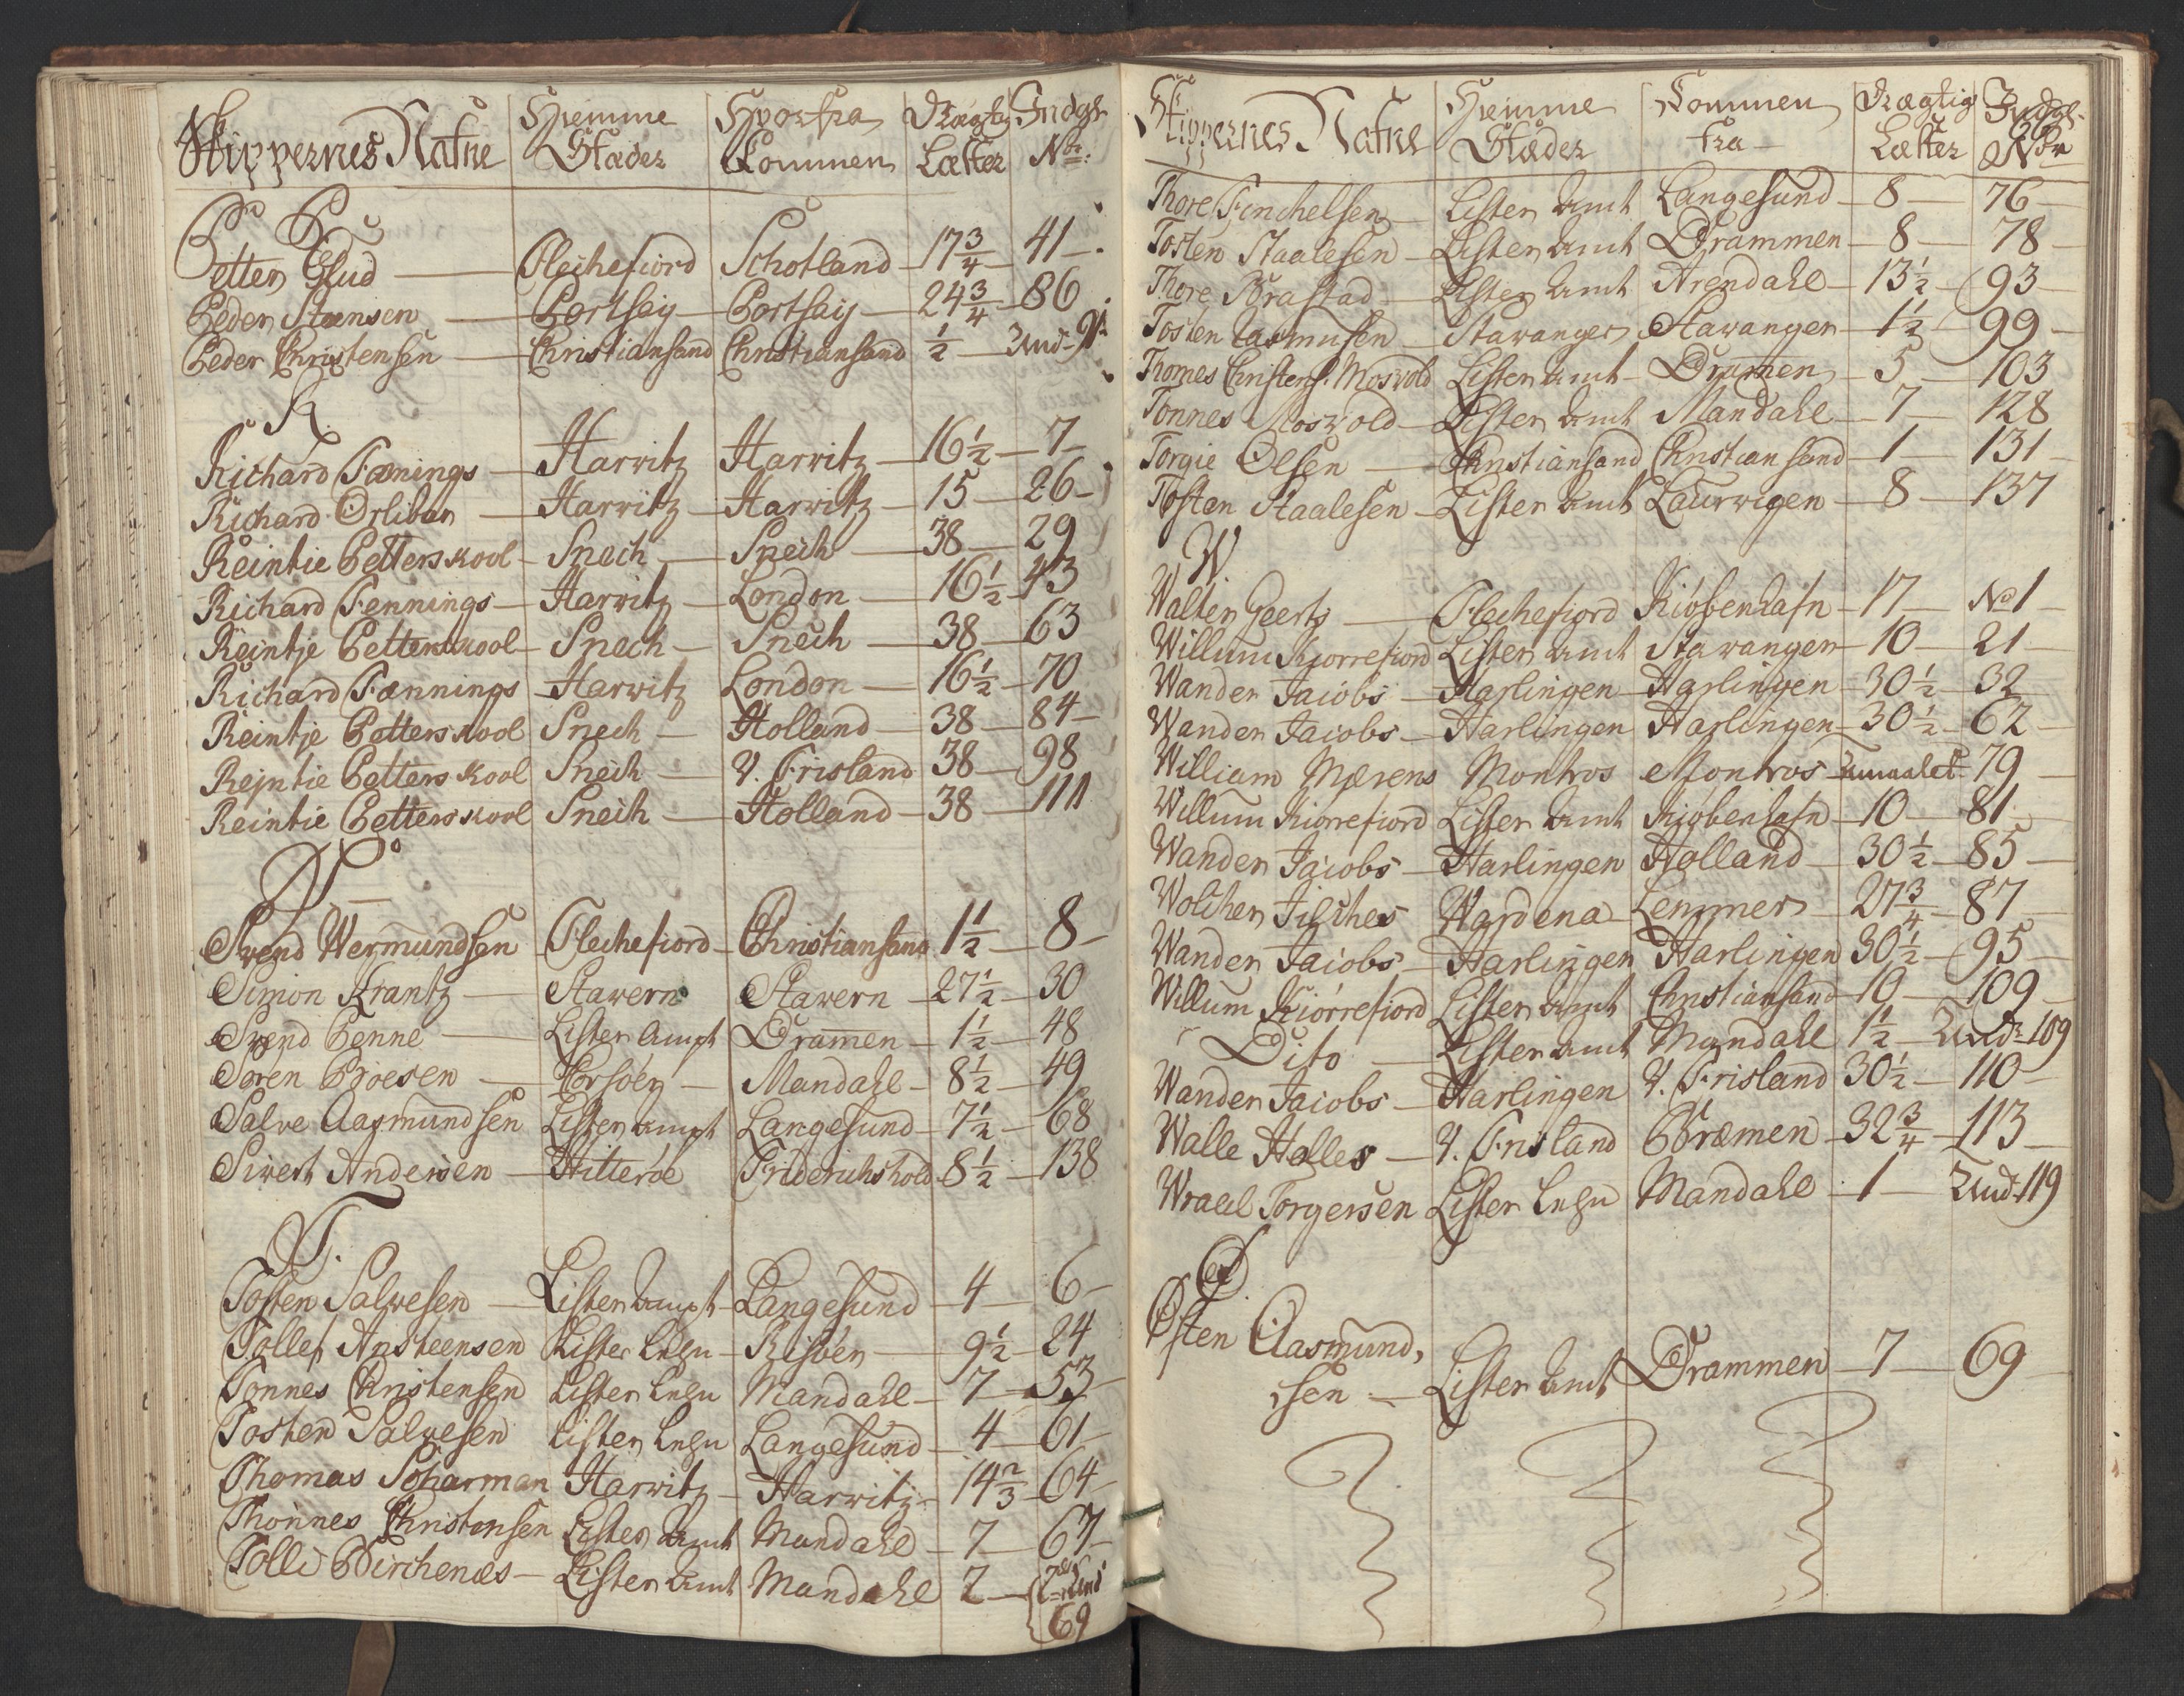 Skippernes Nafne | Hiemme Stæder | Hvorfra Kommen | Drægtig Læster | Indgl. No:
P
Petter Glud — Flechefiord | Schotland — 17¾ — 41 —
Peder Stensen — Portsøy — Portsøy — 24¾ — 86
Peder Christensen — Christiansand | Christiansand ½ —
R
Richard Fænnings — Harwitz | Harwitz — 16½ — 7 —
Richard Orlibar — Harwitz — Harwitz — 15 — 26 —
Reintie Petters Kool — Snech — Snech — 38 — 29
Richard Fennings — Harwitz — London — 16½ — 43
Reintje Petters Kool — Snech — Snech — 38 — 63
Richard Fænnings — Harwitz | London — 16½ — 70
Reintje Petters Kool | Snech — Holland — 38 — 84 —
Rejntie Petters Kool | Snech — V. Frisland 38 — 98
Reintie Petters Kool | Snech — Holland — 38 — 111
S
Svend Wermundsen | Flechefiord — Christiansand 1½ — 8 —
Simon Krantz — Stavern | Stavern — 27½ — 30
Svend Penne — Lister Ampt | Dramen — 1½ — 48
Søren Boesen — Korsöen — Mandahl — 8½ — 49
Salve Aasmundsen | Lister Ampt | Langesund — 7½ — 68
Sivert Andersen — Hitteröe | Friderichshold 8½ — 138
T.
Tosten Salvesen — Lister Ampt — Langesund — 4 — 6 —
Tollef Ansteensen | Lister Lehn — Risöen — 9½ — 24
Tonnes Christensen | Lister Lehn | Mandahl — 7 — 53 —
Tosten Salvesen | Lister Lehn | Langesund — 4 — 61 —
Thomas Scharman | Harwitz — Harwitz — 14⅔ — 64 —
Thönnes Christensen | Lister Amt | Mandahl — 7 — 67 —
Tolli Birchenæs — Lister Amt | Mandahl 2 — 69
Skippernes Nafne | Hiemme Stæder | Kommen fra — | Drægtig Læster | Indgl. No
Thore Finchelsen — Lister Amt | Langesund — 8 — 76 —
Tosten Staalesen — Lister Amt | Drammen — 8 — 78 —
Thore Brastad — Lister Amt | Arendahl — 13½ — 93 —
Tosten Rasmusen — Stavanger | Stavanger — 1½ — 99 —
Thomes Christens. Mosvold | Lister Amt — Dramen — 5 — 103
Tonnes Mosvold — Lister Amt | Mandahl — 7 — 128
Torgie Olsen — Christiansand | Christiansand — 1 — 131
Tosten Staalesen — Lister Amt | Laurvigen — 8 — 137
W
Walter Geertz — Flechefiord | Kiøbenhafn — 17 — No 1 —
Willum Kiorrefiord | Lister Amt | Stavanger — 10 — 21
Wander Jacobs — Harlingen — Harlingen — 30½ — 32
Wander Jacobs — Harlingen | Harlingen — 30½ — 62 —
William Mærens | Montros | Montros — Umaalet — 79
Willum Kiorrefiord | Lister Amt | Kiøbenhafn — 10 — 81
Wander Jacobs — Harlingen | Holland — 30½ — 85 —
Wolcher Jilches | Wardena — Lemmer — 27¾ — 87 —
Wander Jacobs — Harlingen | Harlingen 30½ — 95 —
Willum Kiörrefiord | Lister Amt | Christiansand — 10 — 109 —
Dito — Lister Amt | Mandahl 1½ — Und. 109
Wander Jacobs — Harlingen | V. Frisland 30½ — 110 —
Walle Halles — V. Frisland | Bræmen — 32¾ — 113 —
Wraall Torgersen | Lister Lehn | Mandahl — 1 — Und 119
Ø
Østen Aasmund,
sen — Lister Amt | Drammen — 7 — 69